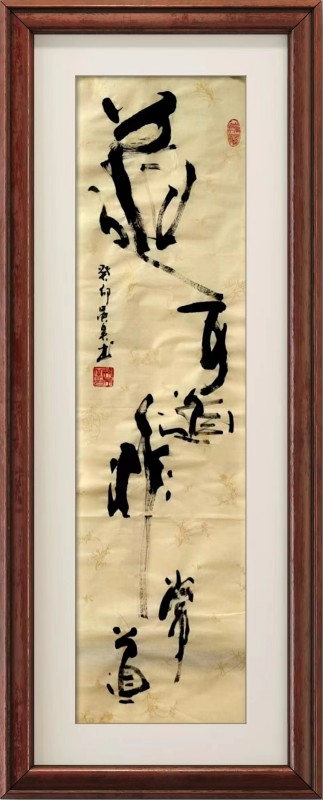 道可道非常道
癸卯吴泉书